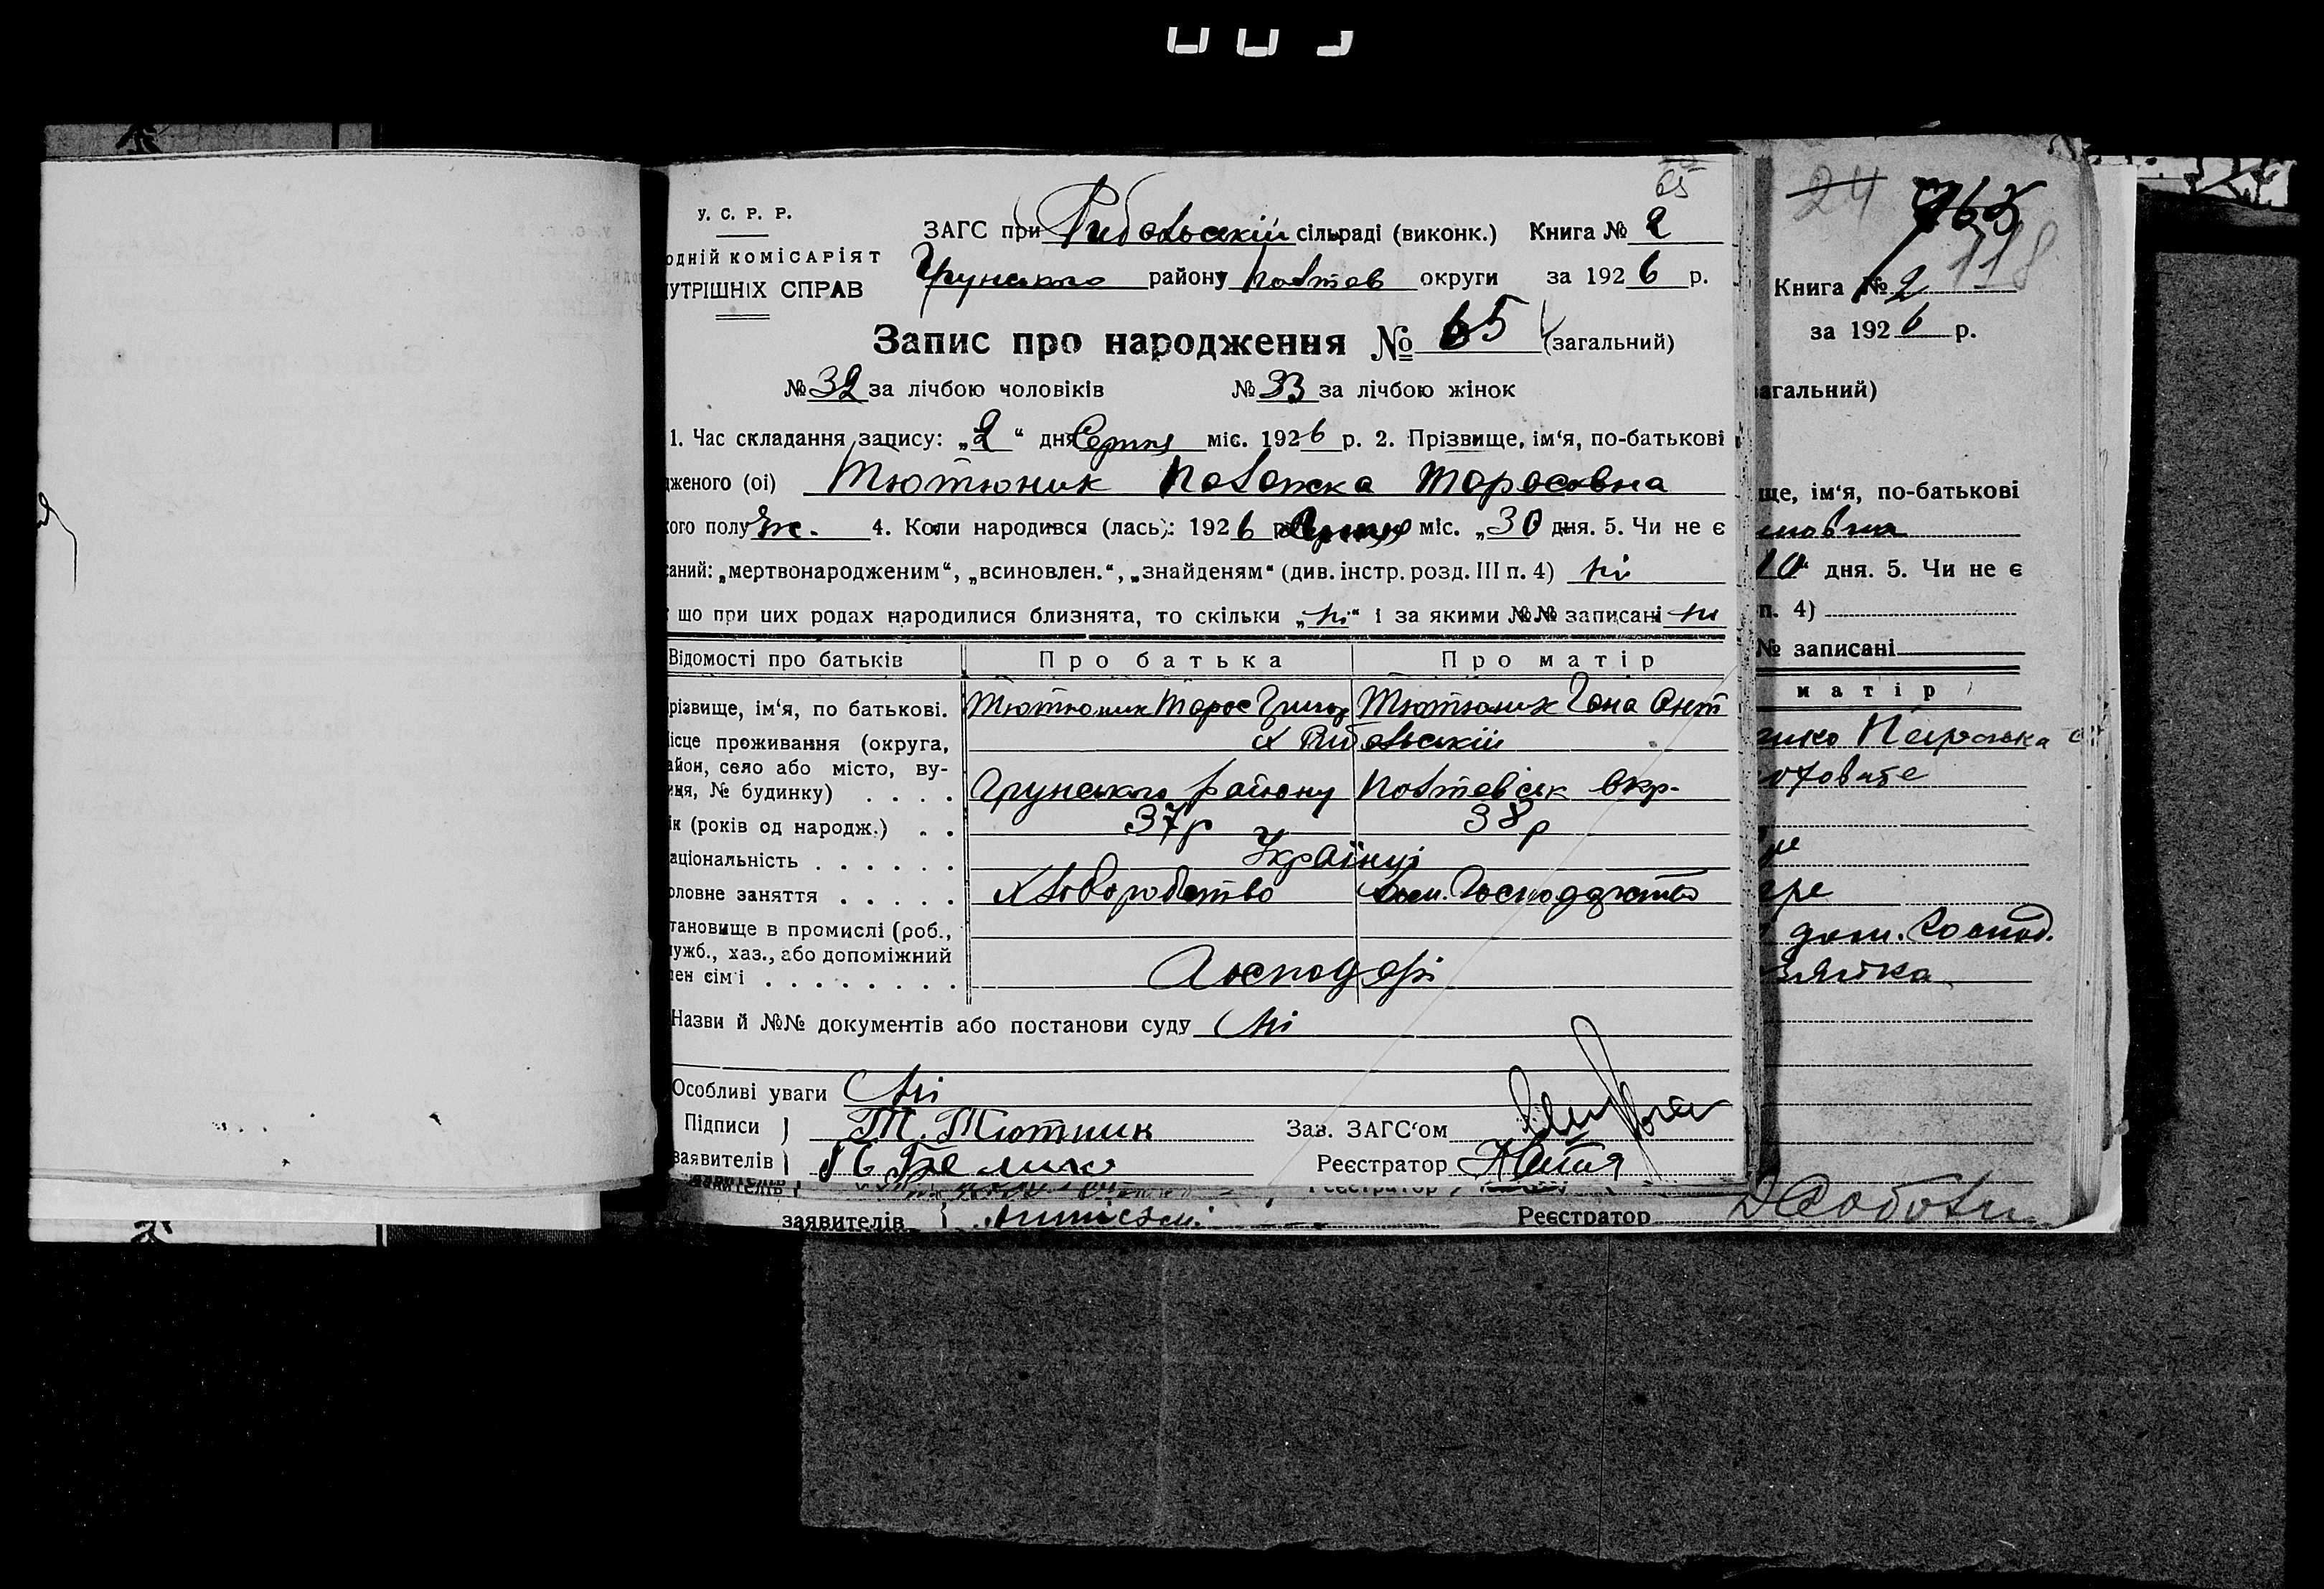 65
У. С. Р. Р.
ОДНІЙ КОМІСАРІЯТ
УТРІШНІХ СПРАВ
ЗАГС при Рибальській сільраді (виконк.) Книга № 2
Грунського району Полтав округи за 1926 р.
Запис про народження № 65 (загальний)
№ 32 за лічбою чоловіків № 33 за лічбою жінок
1. Час складання запису: „2“ дня Серпня міс. 1926 р. 2. Прізвище, ім‘я, по-батькові
дженого (ої) Тютюник Палажка Тарасовна
кого полу Ж. 4. Коли народився (лась): 1926 р. міс. „30 дня. 5. Чи не є
саний: „мертвонародженим“, „всиновлен.“, „знайденям“ (див. інстр. розд. III п. 4) ні
що при цих родах народилися близнята, то скільки „ні“ і за якими №№ записані ні
Відомості про батьків Про батька Про матір
різвище, ім‘я, по батькові. Тютюник Тарас Григор Тютюник Гана Ант
ісце проживання (округа, х Рибальській
айон, село або місто, ву-
иця, № будинку) . . . . Грунського району Полтавськ Окр.
ік (років од народж.) . . 37р 38р
аціональність . . . . . . Українці
оловне заняття . . . . . Хліборобство дом. Господарство
тановище в промислі (роб.,
лужб., хаз., або допоміжний
лен сім‘ї . . . . . . . . . Господарі
Назви й №№ документів або постанови суду Ні
Особливі уваги Ні
Підписи } Т. Тютник Зав. ЗАГС‘ом
заявителів } Реєстратор
заявителів Реєстратор
24 118
Книга № 2
за 1926 р.
агальний)
ще, ім‘я, по-батькові
10“ дня. 5. Чи не є
п. 4)
№ записані
матір
дом. Господ.